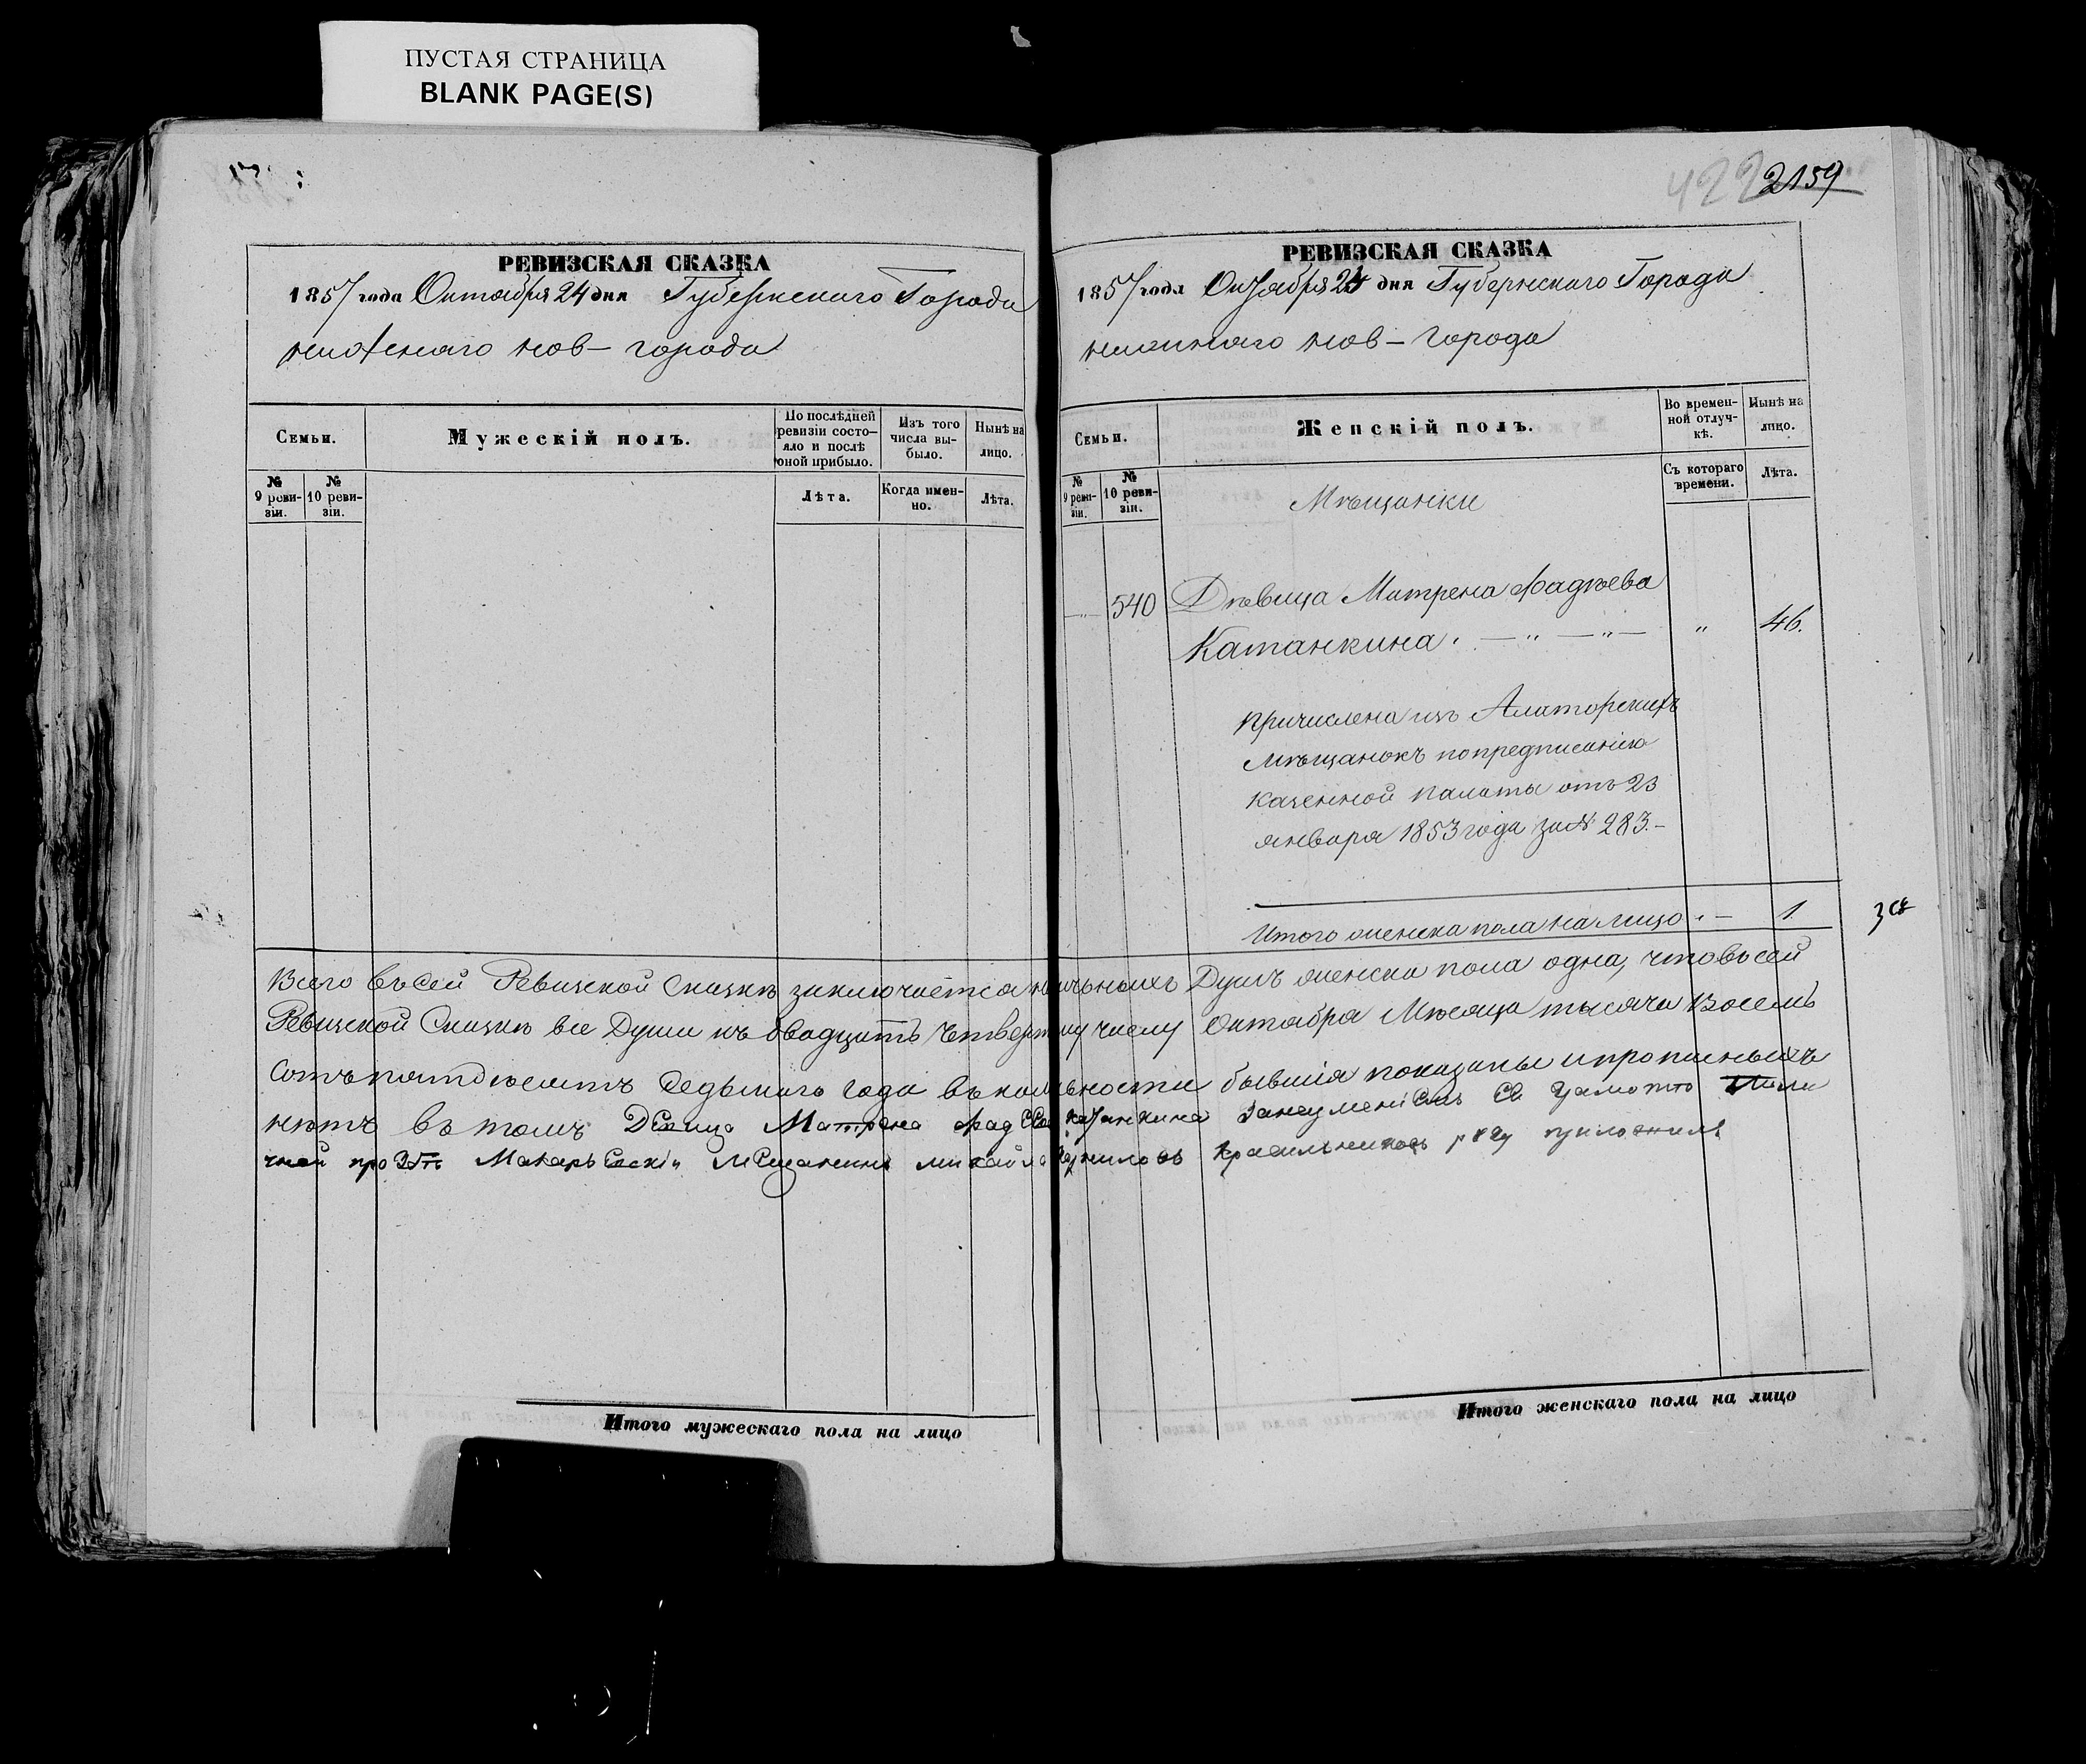 ПУСТАЯ СТРАНИЦА
BLANK PAGE(S)
РЕВИЗСКАЯ СКАЗКА
1857 года Октября 24 дня Губернскаго Города
нижняго нов- города
Семьи.
Мужескій полъ.
По послѣдней ревизіи состояло и послѣ оной прибыло.
Изъ того числа выбыло.
Нынѣ на лицо.
№ 9 ревизіи.
№ 10 ревизіи.
Лѣта.
Когда именно.
Лѣта.
422 2159
РЕВИЗСКАЯ СКАЗКА
1857 года Октября 24 дня Губернскаго Города
нижняго нов- города
Семьи.
Женскій полъ.
Во временной отлучкѣ.
Нынѣ на лицо.
№ 9 ревизіи.
№ 10 ревизіи.
Съ котораго времени.
Лѣта.
Мѣщанки
540 Дѣвица Матрена Фадѣева
Катанкина. — „ — „ — „ 46.
причислена изъ Алаторскихъ
мѣщанокъ по предписанію
казенной палаты отъ 23
января 1853 года за № 283.-
Итого женска пола на лицо „ — 1
Всего въ сей Ревизской Сказкѣ заключается наличныхъ Душъ женска пола одна, что въ сей
Ревизской Сказкѣ все Души къ двадцать четвертому числу Октября Мѣсяца тысяча Восемь
Сотъ пятдесятъ Седьмаго года въ наличности бывшія показаны и прописныхъ
нѣтъ въ томъ Девица Матрена Фадеева Катанкина за неуменіемъ ея грамотѣ
прозбѣ Макарьевскій Мещанинъ михайла Красильниковъ руку приложилъ
Итого мужескаго пола на лицо
Итого женскаго пола на лицо